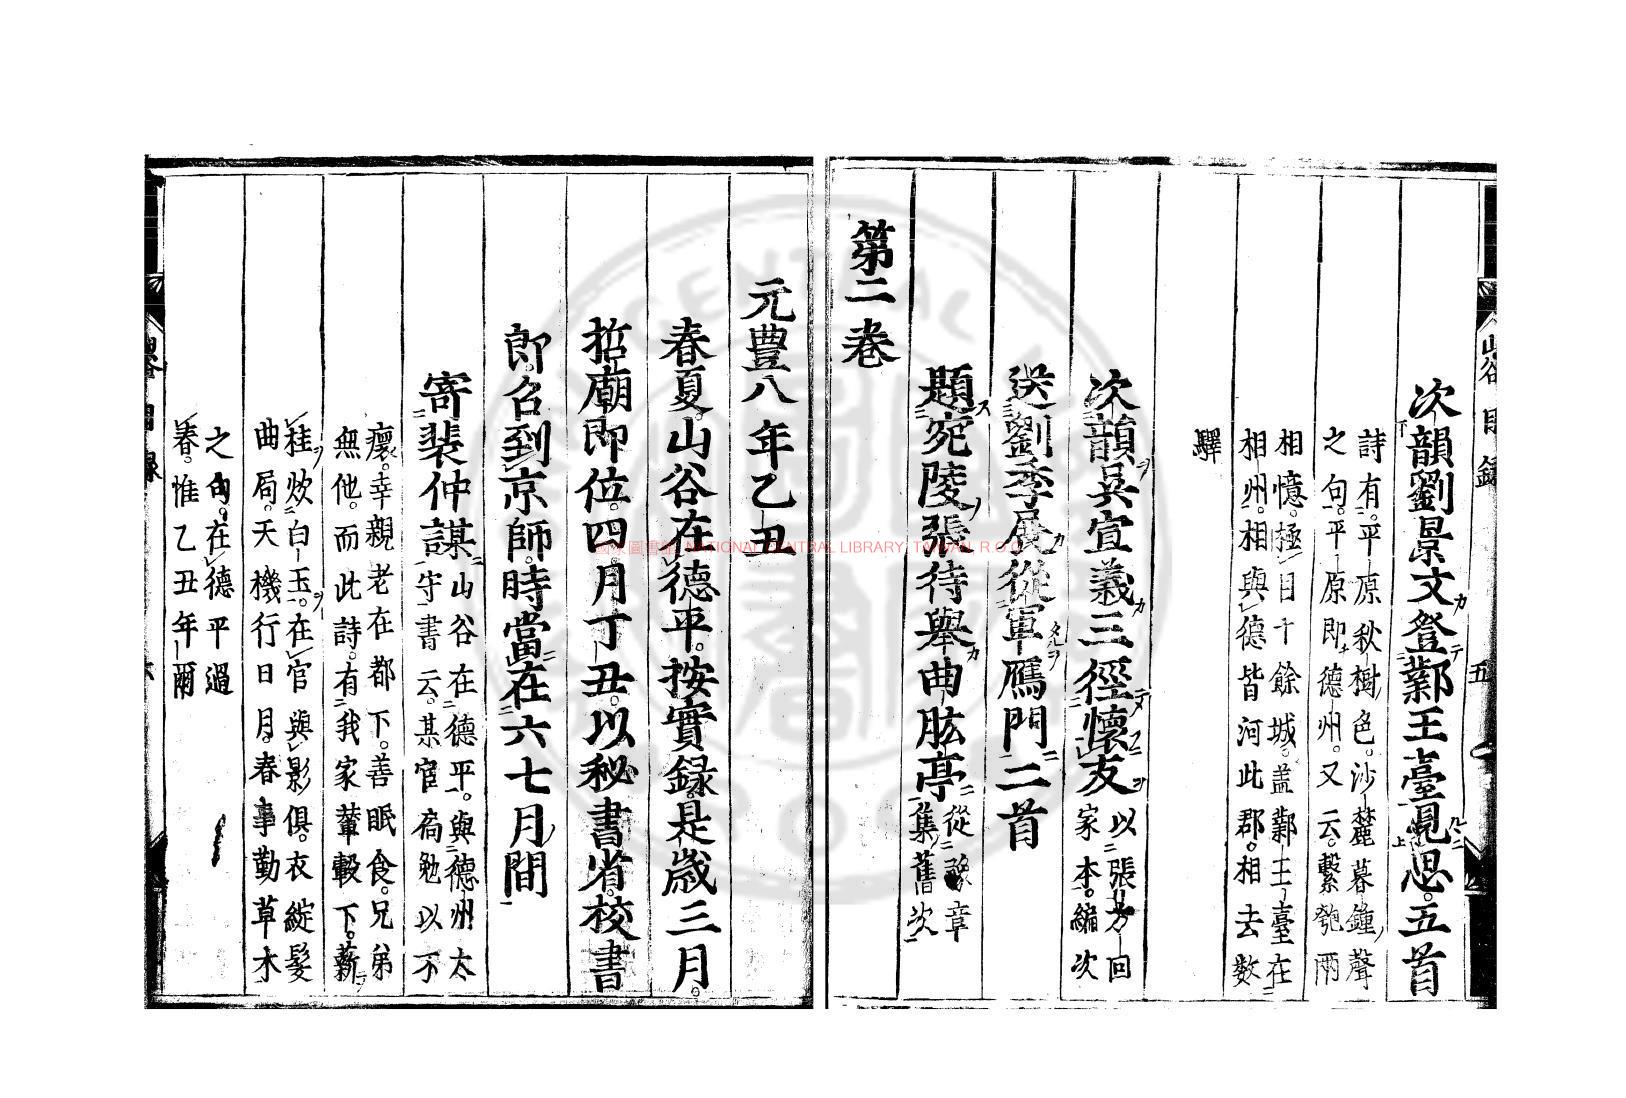 次韻劉景文登鄴王臺見思五首
詩有平原秋樹色沙麓暮鐘聲
之句平原即德州又云繫匏兩
相憶極目十餘城蓋鄴王臺在
相州相與德皆河北郡相去數
驛
次韻吳宣義三徑懷友
以張方回
家本編次
送劉季展從軍鴈門二首
題宛陵張待舉曲肱亭
從豫章
集舊次
第二卷
元豐八年乙丑
春夏山谷在德平按實録是歲三月
哲廟即位四月丁丑以秘書省校書
郎召到京師時當在六七月間
寄裴仲謀
山谷在德平與德州太
守書云某官局勉以不
癏幸親老在都下善眠食兄弟
無他而此詩有我家輦轂下薪
桂炊白玉在官與影俱衣綻髮
曲局天機行日月春事勤草木
之句在德平過
春惟乙丑年爾
山谷目錄
五
NATIONAL CENTRAL LIBRARY, TAIWAN R O C